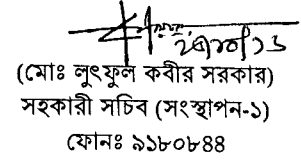 (মোঃ লুৎফুল কবীর সরকার)
সহকারী সচিব (সংস্থাপন-১)
ফোনঃ ৯১৮০৮৪৪